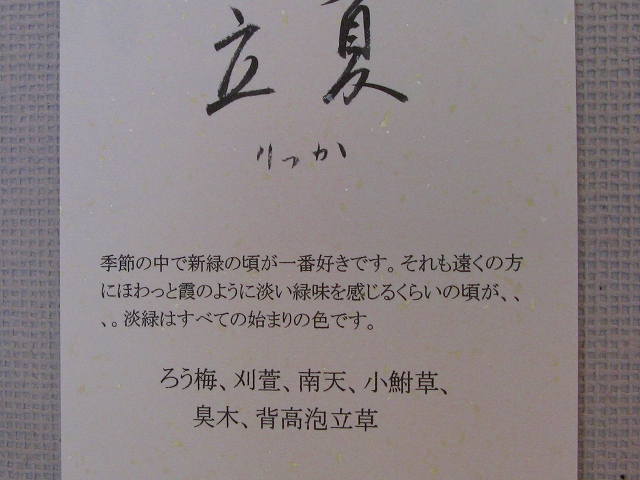 立夏
りっか
季節の中で新緑の頃が一番好きです。それも遠くの方
にほわっと霞のように淡い緑味を感じるくらいの頃が、、
、。淡緑はすべての始まりの色です。
ろう梅、刈萱、南天、小鮒草、
臭木、背高泡立草